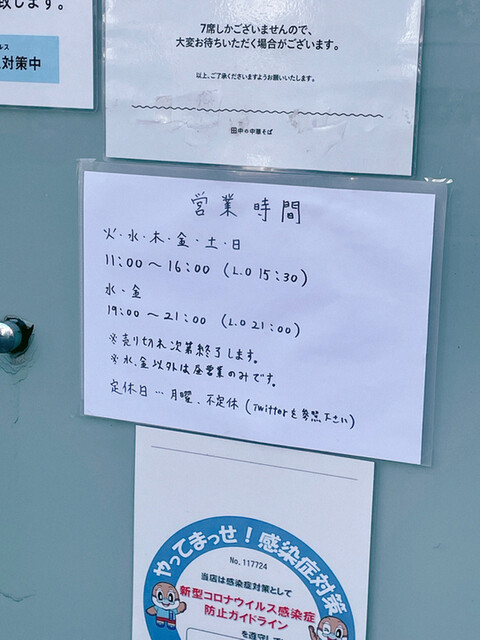 致します。
ルス
対策中
7席しかございませんので、
大変お待ちいただく場合がございます。
以上、ご了承くださいますようお願いいたします。
田中の中華そば
営業時間
火・水・木・金・土・日
11:00～16:00 (L.O 15:30)
水・金
19:00～21:00 (L.O 21:00)
※売り切れ次第終了します。
※水、金以外は昼営業のみです。
定休日…月曜、不定休(Twitterを参照下さい)
やってまっせ!感染症対策
No.117724
当店は感染症対策として
新型コロナウイルス感染症
防止ガイドライン
を遵守して